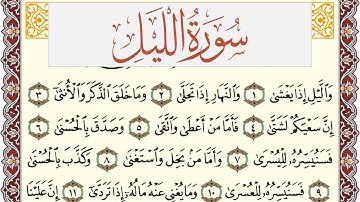 سُورَةُ اللَّيْلِ
وَاللَّيْلِ إِذَا يَغْشَىٰ ١ وَالنَّهَارِ إِذَا تَجَلَّىٰ ٢ وَمَا خَلَقَ الذَّكَرَ وَالْأُنثَىٰ ٣
إِنَّ سَعْيَكُمْ لَشَتَّىٰ ٤ فَأَمَّا مَنْ أَعْطَىٰ وَاتَّقَىٰ ٥ وَصَدَّقَ بِالْحُسْنَىٰ ٦
فَسَنُيَسِّرُهُ لِلْيُسْرَىٰ ٧ وَأَمَّا مَن بَخِلَ وَاسْتَغْنَىٰ ٨ وَكَذَّبَ بِالْحُسْنَىٰ
٩ فَسَنُيَسِّرُهُ لِلْعُسْرَىٰ ١٠ وَمَا يُغْنِي عَنْهُ مَالُهُ إِذَا تَرَدَّىٰ ١١ إِنَّ عَلَيْنَا